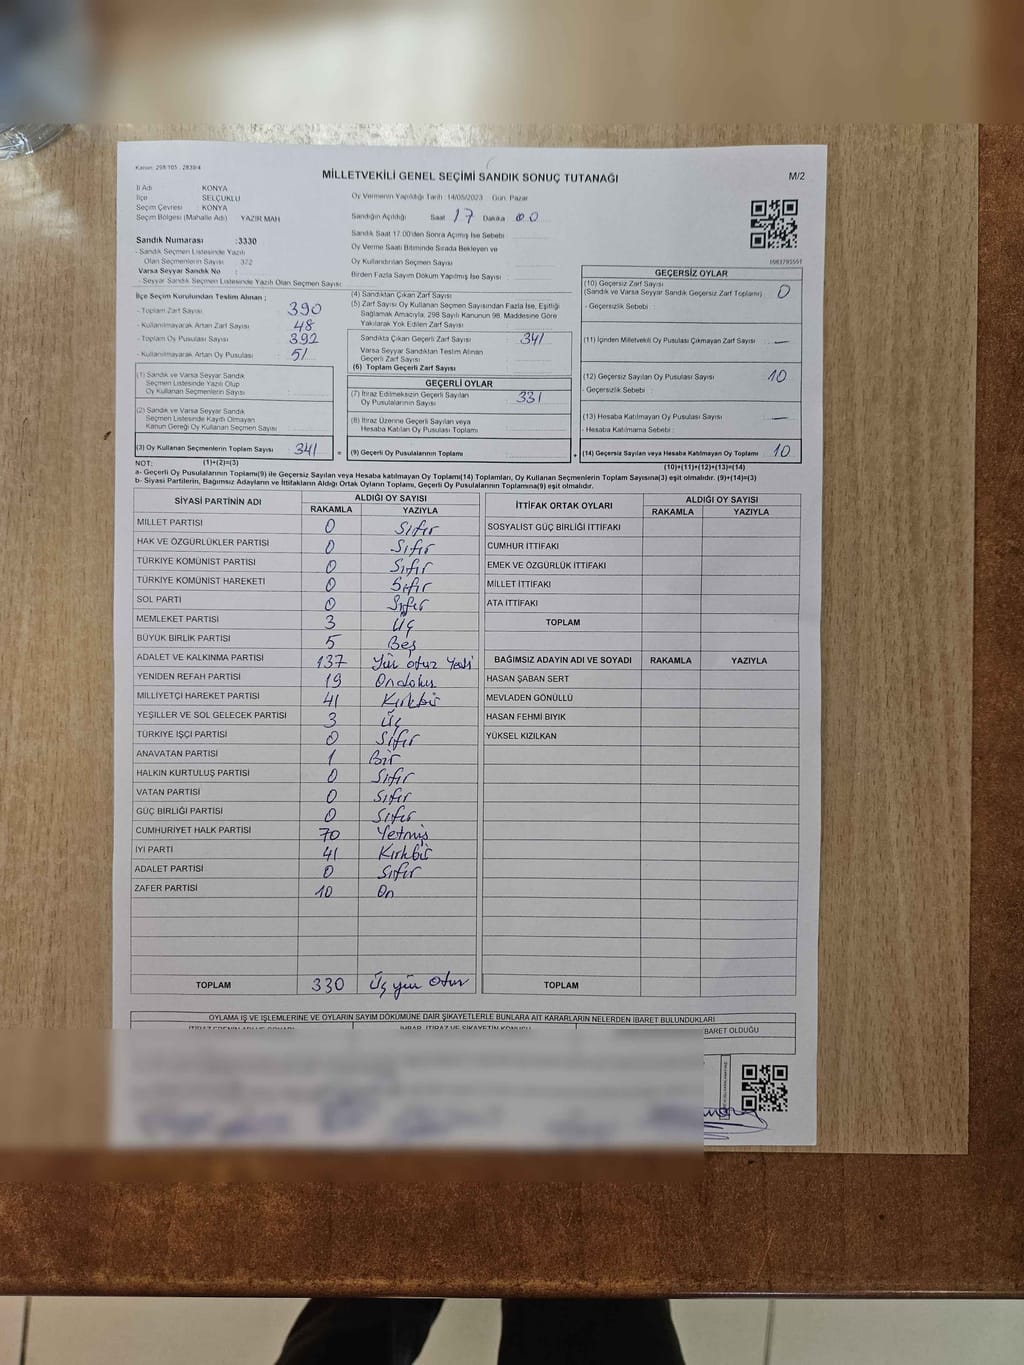 Kanun: 298/105 , 2839/4
MİLLETVEKİLİ GENEL SEÇİMİ SANDIK SONUÇ TUTANAĞI
M/2
İl Adı KONYA
İlçe SELÇUKLU
Seçim Çevresi KONYA
Seçim Bölgesi (Mahalle Adı) YAZIR MAH
Oy Vermenin Yapıldığı Tarih :14/05/2023 Gün: Pazar
Sandığın Açıldığı Saat 17 Dakika 00
Sandık Saat 17:00'den Sonra Açılmış İse Sebebi
Oy Verme Saati Bitiminde Sırada Bekleyen ve
Oy Kullandırılan Seçmen Sayısı
Birden Fazla Sayım Döküm Yapılmış İse Sayısı
Sandık Numarası :3330
- Sandık Seçmen Listesinde Yazılı
Olan Seçmenlerin Sayısı 372
Varsa Seyyar Sandık No :
- Seyyar Sandık Seçmen Listesinde Yazılı Olan Seçmen Sayısı:
İlçe Seçim Kurulundan Teslim Alınan ;
- Toplam Zarf Sayısı 390
- Kullanılmayarak Artan Zarf Sayısı 48
- Toplam Oy Pusulası Sayısı 392
- Kullanılmayarak Artan Oy Pusulası 51
(1) Sandık ve Varsa Seyyar Sandık
Seçmen Listesinde Yazılı Olup
Oy Kullanan Seçmenlerin Sayısı
(2) Sandık ve Varsa Seyyar Sandık
Seçmen Listesinde Kayıtlı Olmayan
Kanun Gereği Oy Kullanan Seçmen Sayısı
(3) Oy Kullanan Seçmenlerin Toplam Sayısı 341
(4) Sandıktan Çıkan Zarf Sayısı
(5) Zarf Sayısı Oy Kullanan Seçmen Sayısından Fazla İse, Eşitliği
Sağlamak Amacıyla; 298 Sayılı Kanunun 98. Maddesine Göre
Yakılarak Yok Edilen Zarf Sayısı
Sandıkta Çıkan Geçerli Zarf Sayısı 341
Varsa Seyyar Sandıktan Teslim Alınan
Geçerli Zarf Sayısı
(6) Toplam Geçerli Zarf Sayısı
GEÇERLİ OYLAR
(7) İtiraz Edilmeksizin Geçerli Sayılan
Oy Pusulalarının Sayısı 331
(8) İtiraz Üzerine Geçerli Sayılan veya
Hesaba Katılan Oy Pusulası Toplamı
= (9) Geçerli Oy Pusulalarının Toplamı
GEÇERSİZ OYLAR
(10) Geçersiz Zarf Sayısı
(Sandık ve Varsa Seyyar Sandık Geçersiz Zarf Toplamı) 0
- Geçersizlik Sebebi :
(11) İçinden Milletvekili Oy Pusulası Çıkmayan Zarf Sayısı —
(12) Geçersiz Sayılan Oy Pusulası Sayısı 10
- Geçersizlik Sebebi :
(13) Hesaba Katılmayan Oy Pusulası Sayısı —
- Hesaba Katılmama Sebebi :
+ (14) Geçersiz Sayılan veya Hesaba Katılmayan Oy Toplamı 10
NOT: (1)+(2)=(3)
(10)+(11)+(12)+(13)=(14)
a- Geçerli Oy Pusulalarının Toplamı(9) ile Geçersiz Sayılan veya Hesaba katılmayan Oy Toplamı(14) Toplamları, Oy Kullanan Seçmenlerin Toplam Sayısına(3) eşit olmalıdır. (9)+(14)=(3)
b- Siyasi Partilerin, Bağımsız Adayların ve İttifakların Aldığı Ortak Oyların Toplamı, Geçerli Oy Pusulalarının Toplamına(9) eşit olmalıdır.
SİYASİ PARTİNİN ADI ALDIĞI OY SAYISI
RAKAMLA YAZIYLA
MİLLET PARTİSİ 0 Sıfır
HAK VE ÖZGÜRLÜKLER PARTİSİ 0 Sıfır
TÜRKİYE KOMÜNİST PARTİSİ 0 Sıfır
TÜRKİYE KOMÜNİST HAREKETİ 0 Sıfır
SOL PARTİ 0 Sıfır
MEMLEKET PARTİSİ 3 Üç
BÜYÜK BİRLİK PARTİSİ 5 Beş
ADALET VE KALKINMA PARTİSİ 137 Yüz otuz Yedi
YENİDEN REFAH PARTİSİ 19 Ondokuz
MİLLİYETÇİ HAREKET PARTİSİ 41 Kırkbir
YEŞİLLER VE SOL GELECEK PARTİSİ 3 Üç
TÜRKİYE İŞÇİ PARTİSİ 0 Sıfır
ANAVATAN PARTİSİ 1 Bir
HALKIN KURTULUŞ PARTİSİ 0 Sıfır
VATAN PARTİSİ 0 Sıfır
GÜÇ BİRLİĞİ PARTİSİ 0 Sıfır
CUMHURİYET HALK PARTİSİ 70 Yetmiş
İYİ PARTİ 41 Kırkbir
ADALET PARTİSİ 0 Sıfır
ZAFER PARTİSİ 10 On
TOPLAM 330 Üç yüz Otuz
İTTİFAK ORTAK OYLARI ALDIĞI OY SAYISI
RAKAMLA YAZIYLA
SOSYALİST GÜÇ BİRLİĞİ İTTİFAKI
CUMHUR İTTİFAKI
EMEK VE ÖZGÜRLÜK İTTİFAKI
MİLLET İTTİFAKI
ATA İTTİFAKI
TOPLAM
BAĞIMSIZ ADAYIN ADI VE SOYADI RAKAMLA YAZIYLA
HASAN ŞABAN SERT
MEVLADEN GÖNÜLLÜ
HASAN FEHMİ BIYIK
YÜKSEL KIZILKAN
TOPLAM
OYLAMA İŞ VE İŞLEMLERİNE VE OYLARIN SAYIM DÖKÜMÜNE DAİR ŞİKAYETLERLE BUNLARA AİT KARARLARIN NELERDEN İBARET BULUNDUKLARI
BARET OLDUĞU